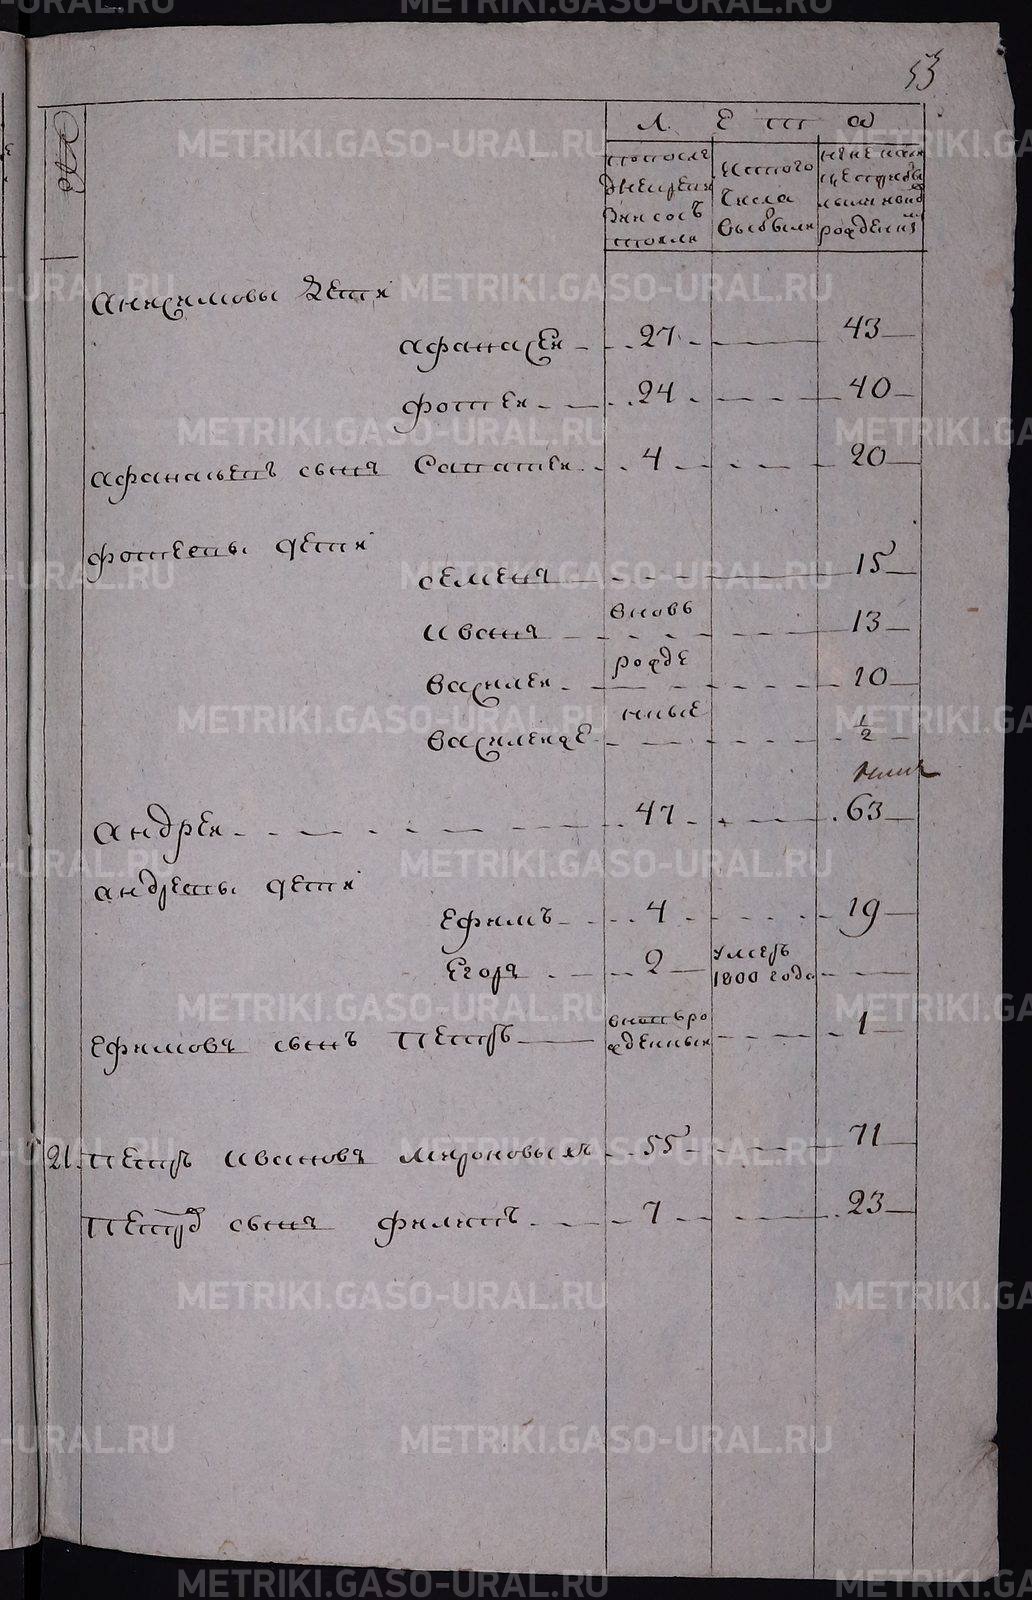 53
№
Л Е Т А
по после
дней реви
зии сос
тояли
ис того
числа
выбыли
Анисимовы дети
Афанасеи 27 43
Фотеи 24 40
Афанасьевъ сынъ Савателеи 4 20
Фотеевы дети
Семенъ 15
Иванъ вновь 13
Василеи рожде 10
Василеижě нные 1/2
Андреи 47 63
Андреевы дети
Ефимъ 4 19
Егоръ 2 умеръ
1800 года
Ефимовъ сынъ Петръ вновь ро
жденный 1
21. Петръ Ивановъ Мироновыхъ 55 71
Петровъ сынъ Филипъ 7 23
METRIKI.GASO-URAL.RU